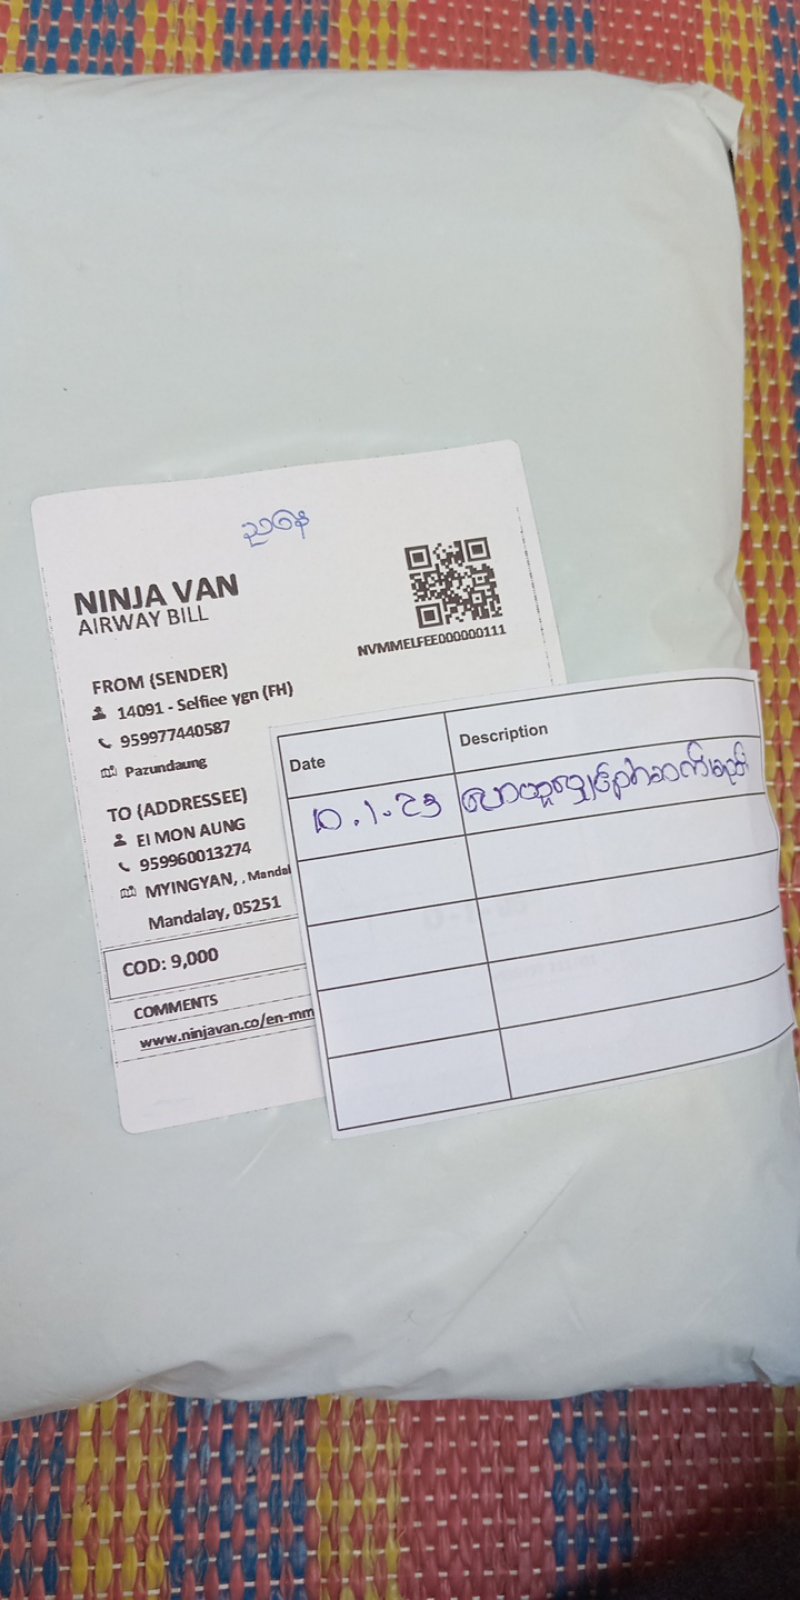 ညနေ
NINJA VAN
AIRWAY BILL
NVMMELFEE000000111
FROM (SENDER)
14091 - Selfiee ygn (FH)
959977440587
Pazundaung
TO (ADDRESSEE)
EI MON AUNG
959960013274
MYINGYAN, , Mandal
Mandalay, 05251
COD: 9,000
COMMENTS
www.ninjavan.co/en-mm
Date Description